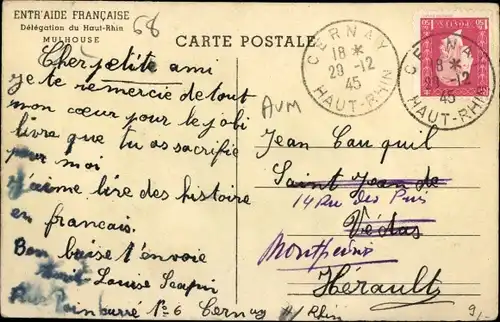 ENTR'AIDE FRANÇAISE
Délégation du Haut-Rhin
MULHOUSE
68
CARTE POSTALE
CERNAY
18 *
29 -12
45
HAUT-RHIN
CERNAY
18 *
-12
45
HAUT-RHIN
AUM
Cher petite ami
Je te remercie de tout
mon cœur pour le joli
livre que tu as sacrifié
pour moi
J'aime lire des histoire
en français.
Bon baise t'envoie
Louise
No 6 Cernay
H/ Rhin
Jean Cauquil
Saint Jean de
14 Rue des
Védas
Hérault
9,-